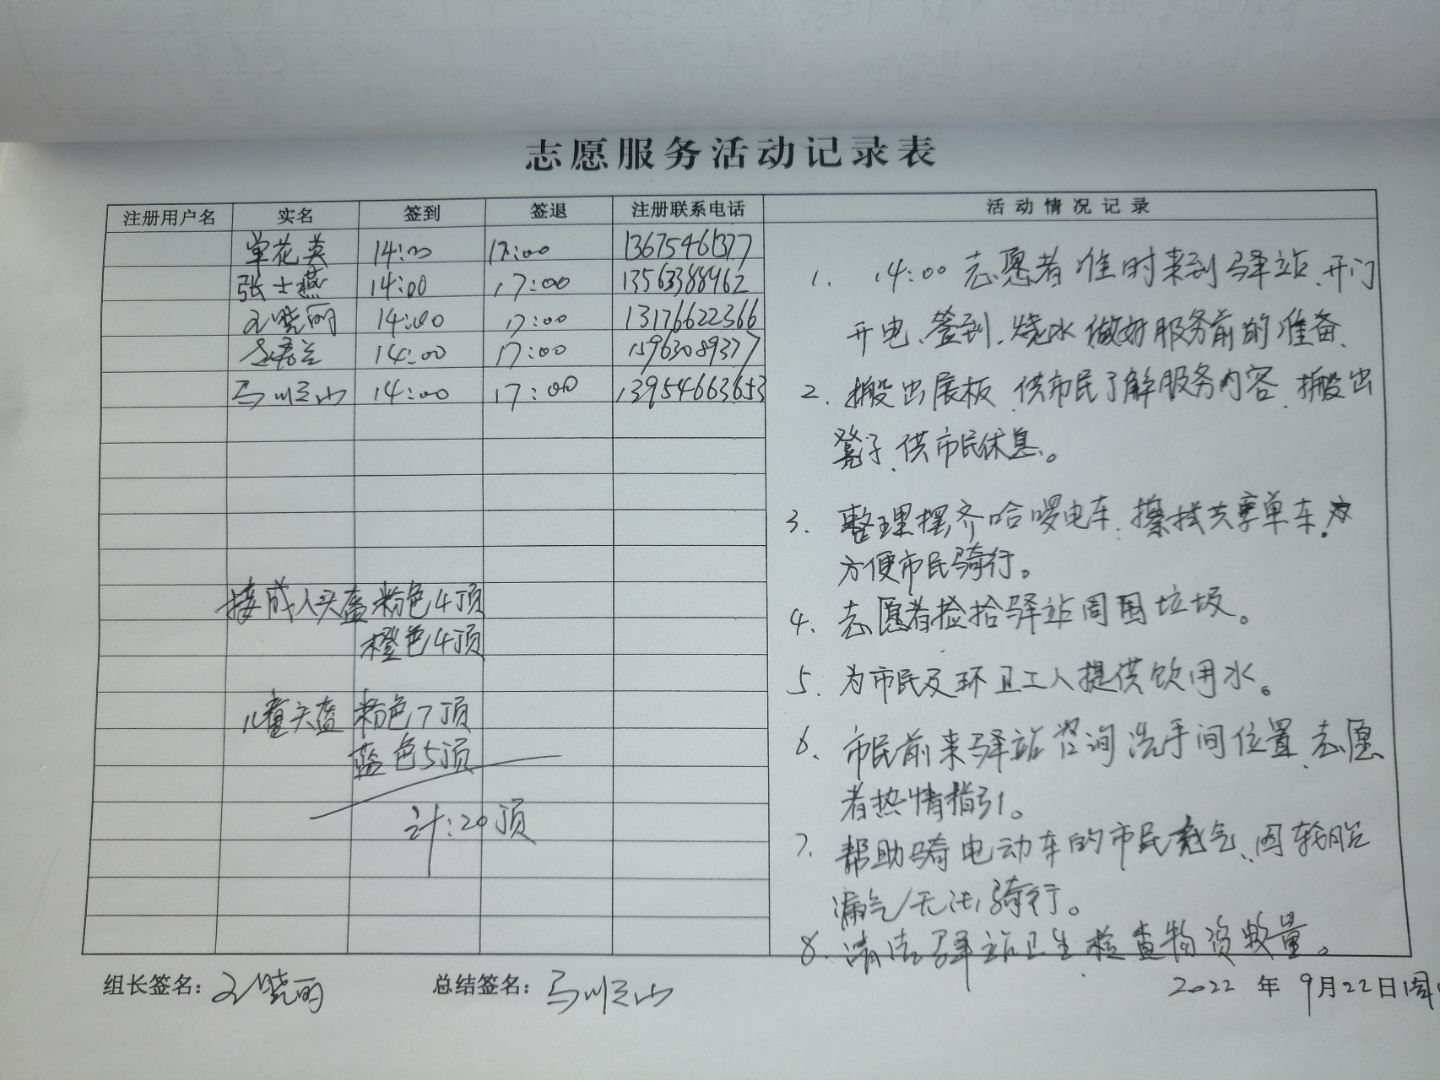 志愿服务活动记录表
注册用户名 实名 签到 签退 注册联系电话 活动情况记录
单花英 14:00 17:00 13675461377
张士燕 14:00 17:00 13563388962
晓丽 14:00 17:00 13176622366
14:00 17:00 15963089377
马顺山 14:00 17:00 13954663653
接成人头盔 粉色4顶
橙色4顶
儿童头盔 粉色7顶
蓝色5顶
计:20顶
1. 14:00 志愿者准时来到驿站、开门
开电、签到、烧水做好服务前的准备、
2. 搬出展板、供市民了解服务内容、搬出
凳子、供市民休息。
3. 整理摆齐哈啰电车、擦拭共享单车,
方便市民骑行。
4. 志愿者捡拾驿站周围垃圾。
5. 为市民及环卫工人提供饮用水。
6. 市民前来驿站咨询洗手间位置、志愿
者热情指引。
7. 帮助骑电动车的市民充气、因轮胎
漏气无法骑行。
8. 清洁驿站卫生、检查物资数量。
组长签名: 晓丽 总结签名: 马顺山 2022 年 9月22日周